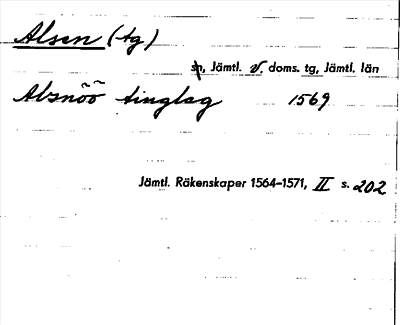 Alsen (tg)
sn, Jämtl. v. doms. tg, Jämtl. län
Alsnöõ tinglag 1569
Jämtl. Räkenskaper 1564–1571, II s. 202